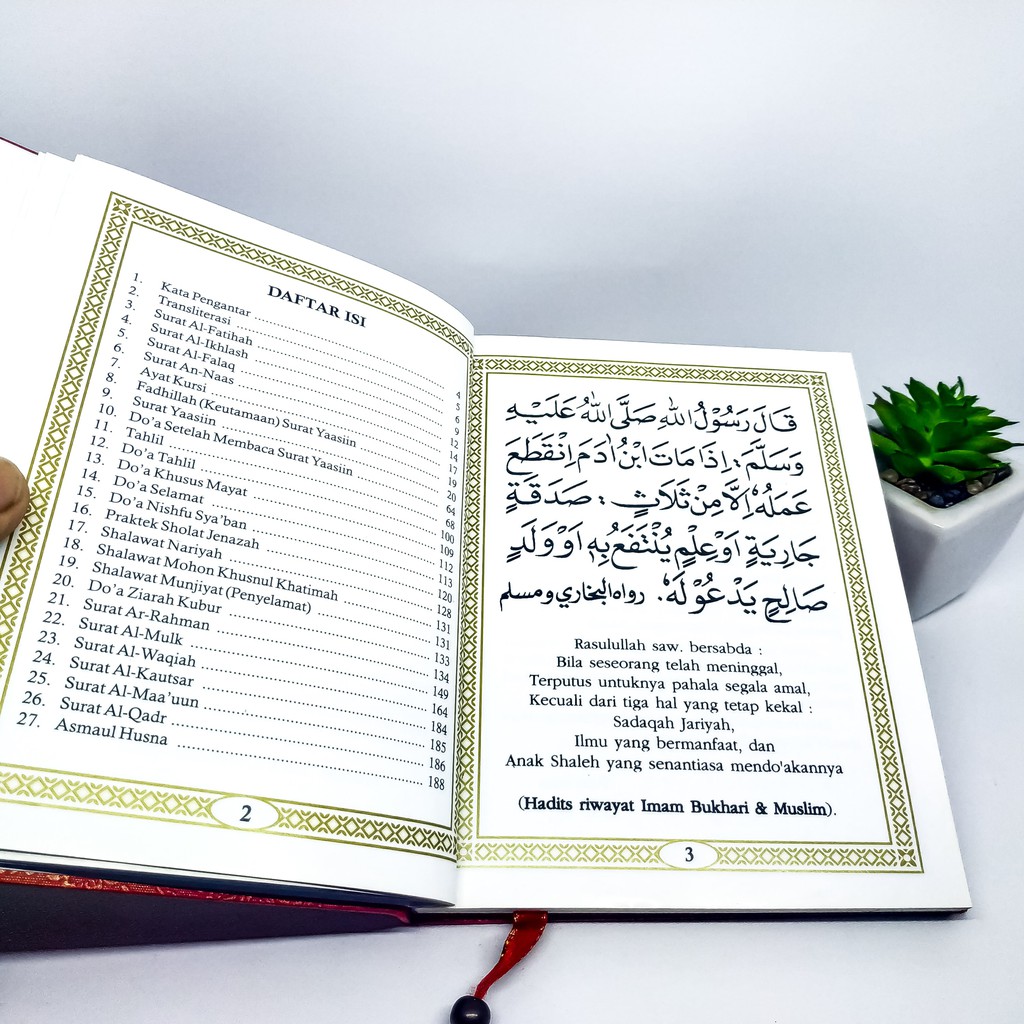 DAFTAR ISI
1. Kata Pengantar ........ 4
2. Transliterasi ........ 5
3. Surat Al-Fatihah ........ 6
4. Surat Al-Ikhlash ........ 9
5. Surat Al-Falaq ........ 12
6. Surat An-Naas ........ 14
7. Ayat Kursi ........ 17
8. Fadhillah (Keutamaan) Surat Yaasiin ........ 19
9. Surat Yaasiin ........ 20
10. Do'a Setelah Membaca Surat Yaasiin ........ 64
11. Tahlil ........ 68
12. Do'a Tahlil ........ 100
13. Do'a Khusus Mayat ........ 109
14. Do'a Selamat ........ 112
15. Do'a Nishfu Sya'ban ........ 113
16. Praktek Sholat Jenazah ........
17. Shalawat Nariyah ........ 128
18. Shalawat Mohon Khusnul Khatimah ........ 131
19. Shalawat Munjiyat (Penyelamat) ........ 131
20. Do'a Ziarah Kubur ........ 133
21. Surat Ar-Rahman ........ 134
22. Surat Al-Mulk ........ 149
23. Surat Al-Waqiah ........ 164
24. Surat Al-Kautsar ........ 184
25. Surat Al-Maa'uun ........ 185
26. Surat Al-Qadr ........ 186
27. Asmaul Husna ........ 188
2
قَالَ رَسُوْلُ اللهِ صَلَّى اللهُ عَلَيْهِ
وَسَلَّمَ: اِذَا مَاتَ ابْنُ اٰدَمَ اِنْقَطَعَ
عَمَلُهُ اِلَّا مِنْ ثَلَاثٍ : صَدَقَةٍ
جَارِيَةٍ اَوْ عِلْمٍ يُنْتَفَعُ بِهِ اَوْ وَلَدٍ
صَالِحٍ يَدْعُوْ لَهُ. رواه البخاري ومسلم
Rasulullah saw. bersabda :
Bila seseorang telah meninggal,
Terputus untuknya pahala segala amal,
Kecuali dari tiga hal yang tetap kekal :
Sadaqah Jariyah,
Ilmu yang bermanfaat, dan
Anak Shaleh yang senantiasa mendo'akannya
(Hadits riwayat Imam Bukhari & Muslim).
3